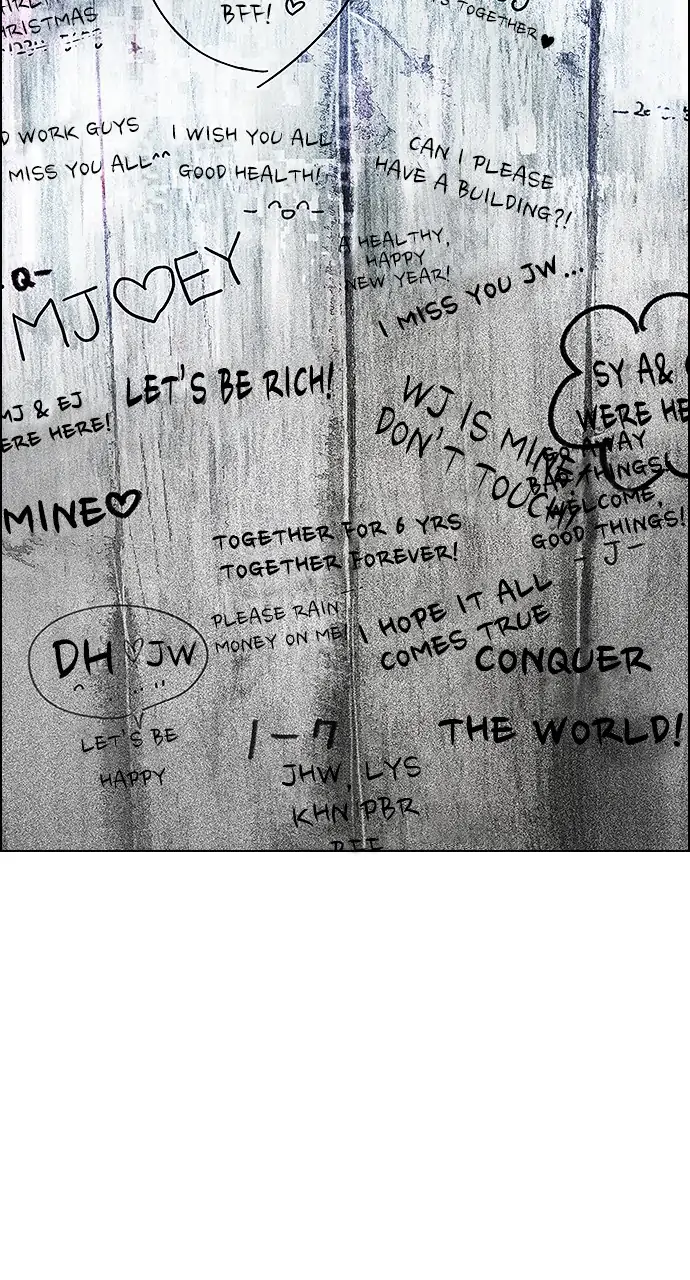 CHRISTMAS
BFF! ♡
TOGETHER ♥
WORK GUYS
MISS YOU ALL^^
I WISH YOU ALL
GOOD HEALTH!
CAN I PLEASE
HAVE A BUILDING?!
A HEALTHY,
HAPPY
NEW YEAR!
I MISS YOU JW...
Q-
MJ♡EY
LET'S BE RICH!
SY A&
WERE HE
MJ & EJ
ERE HERE!
WJ IS MINE
DON'T TOUCH!
AWAY
BAD THINGS!
WELCOME,
GOOD THINGS!
- J -
MINE♡
TOGETHER FOR 6 YRS
TOGETHER FOREVER!
PLEASE RAIN
MONEY ON ME
I HOPE IT ALL
COMES TRUE
DH ♡ JW
LET'S BE
HAPPY
CONQUER
THE WORLD!
1-7
JHW, LYS
KHN PBR
BFF